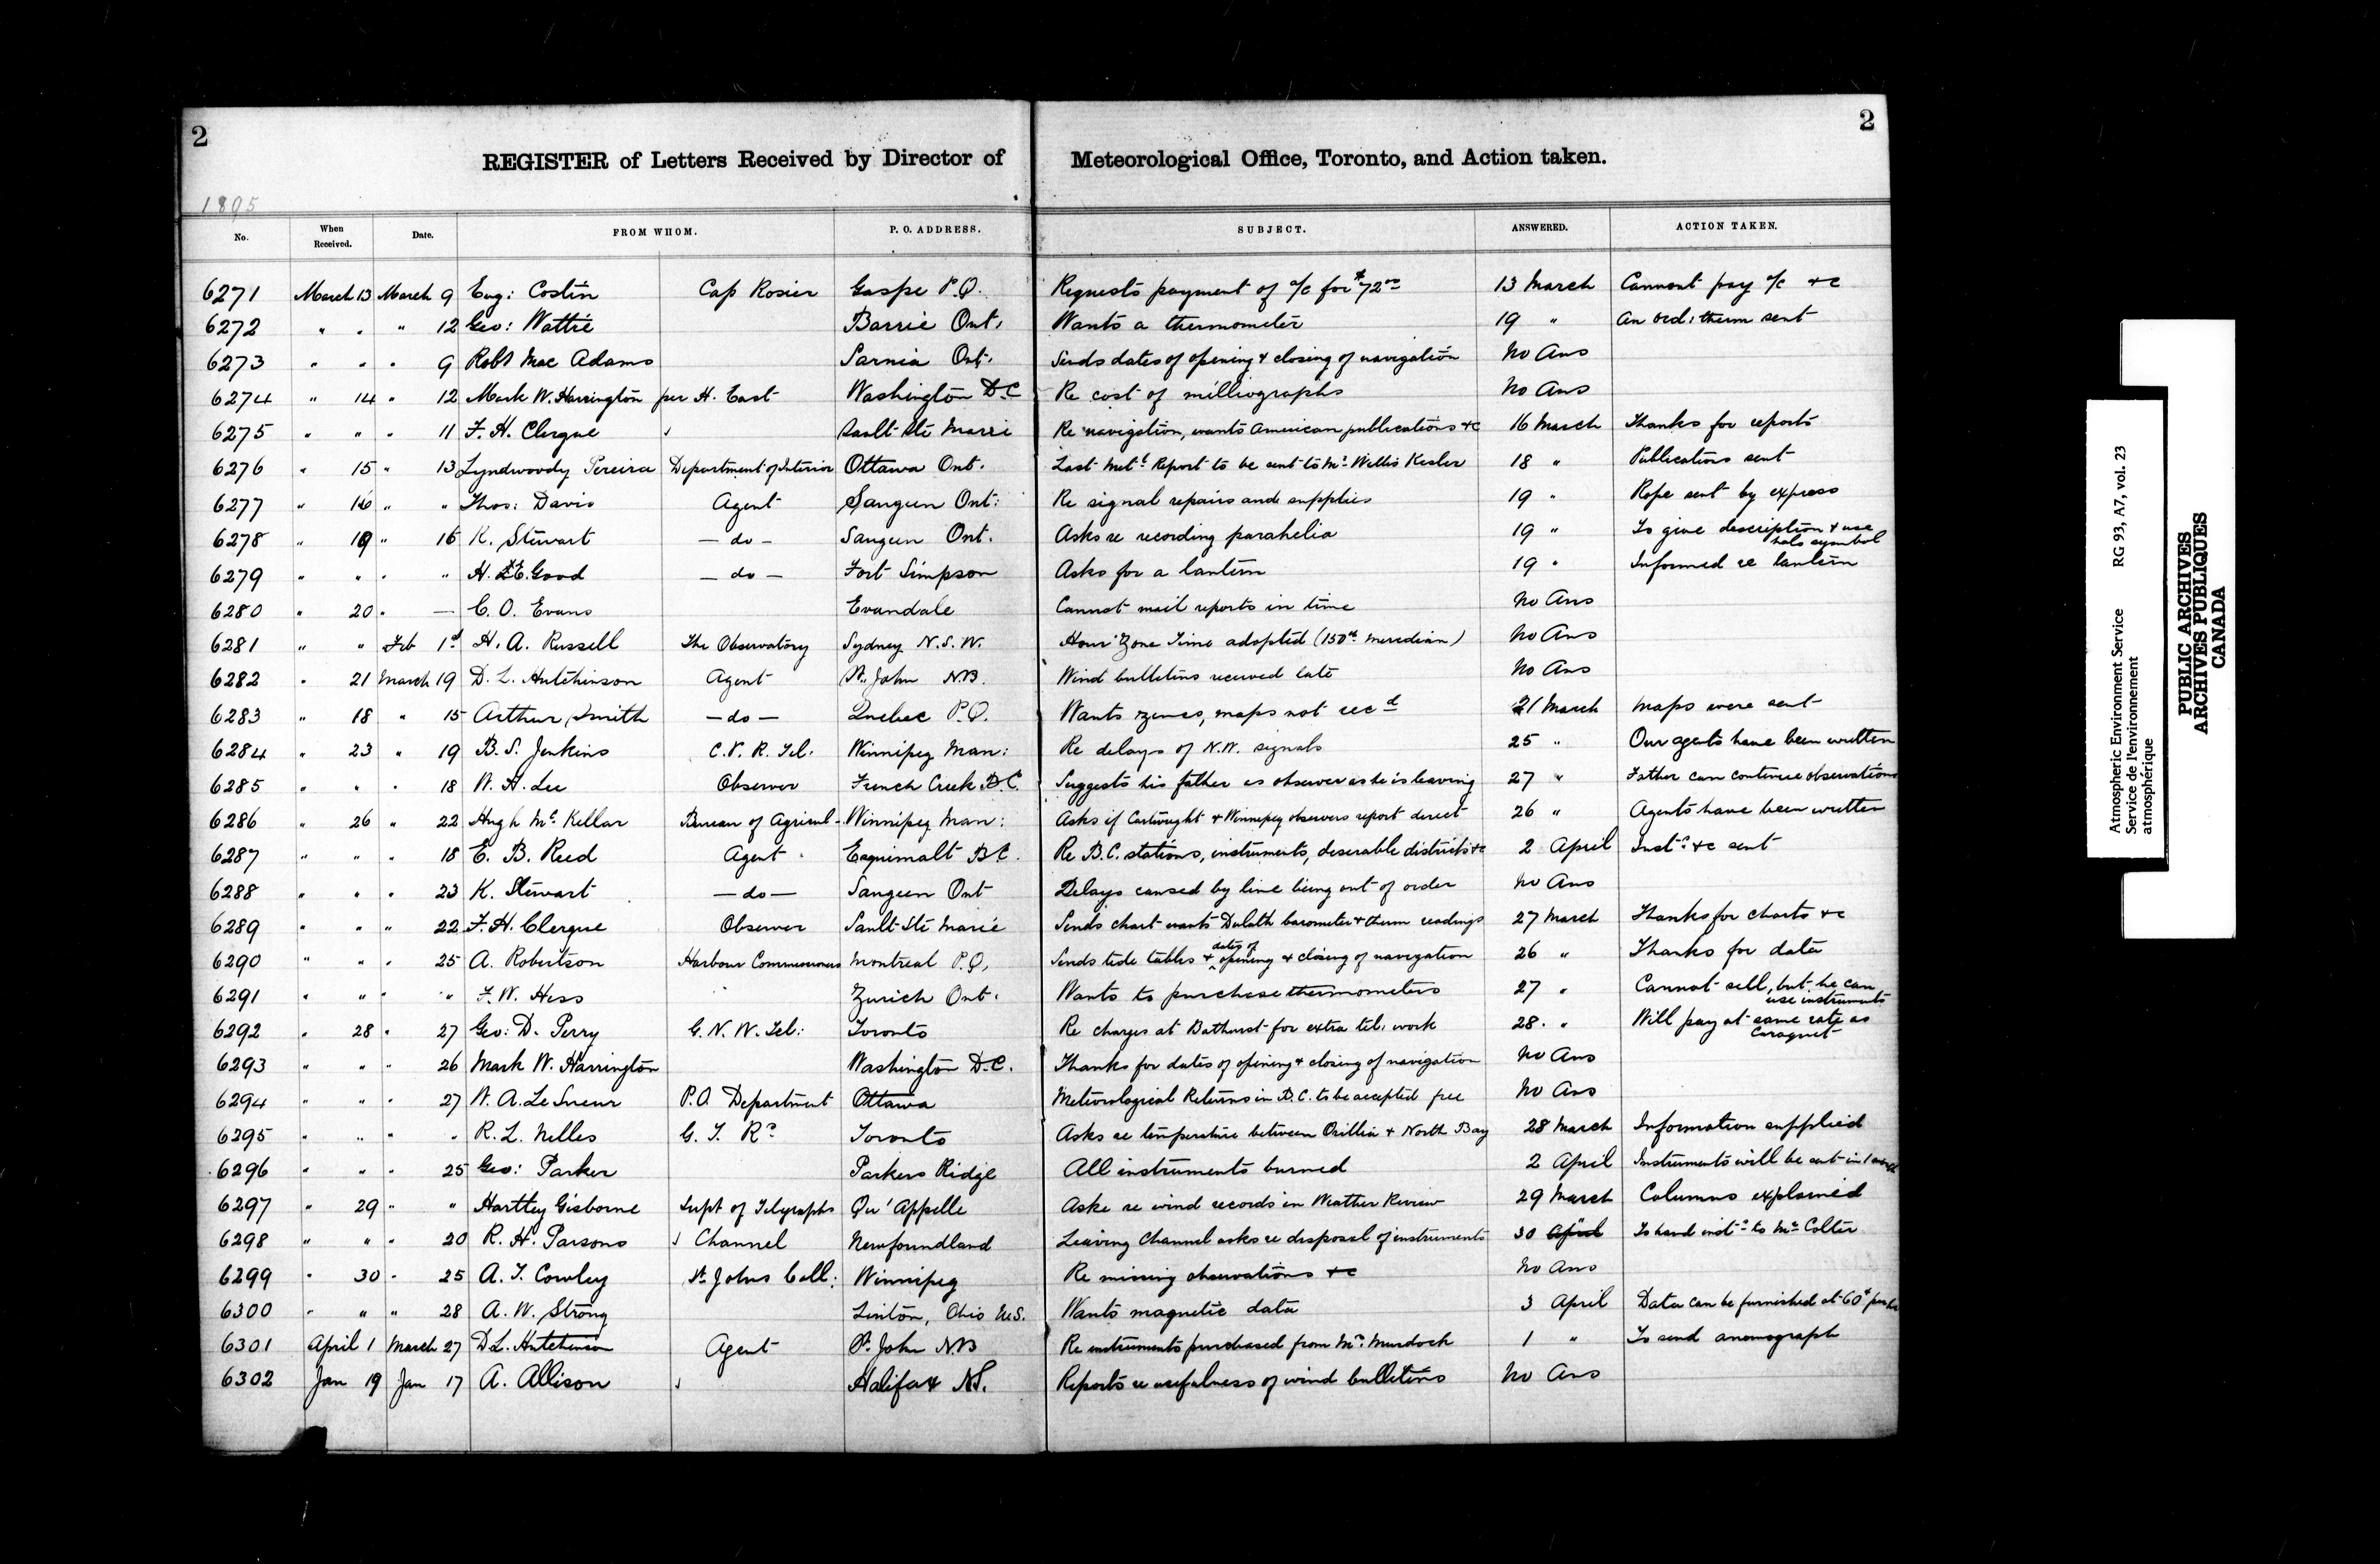 2
2
REGISTER of Letters Received by Director of Meteorological Office, Toronto, and Action taken.
1895
No. When Received. Date. FROM WHOM. P. O. ADDRESS. SUBJECT. ANSWERED. ACTION TAKEN.
6271 March 13 March 9 Eug: Costin Cap Rosier Gaspe P.Q. Requests payment of a/c for $72 00 13 March Cannot pay a/c +c
6272 " " " 12 Geo: Wattie Barrie Ont. Wants a thermometer 19 " An ord: therm sent
6273 " " " 9 Robt Mac Adams Sarnia Ont. Sends dates of opening & closing of navigation No Ans
6274 " 14 " 12 Mark W. Harrington per H. East Washington D.C Re cost of milliographs No Ans
6275 " " " 11 F. H. Clergue Sault Ste Marie Re navigation, wants American publications +c 16 March Thanks for reports
6276 " 15 " 13 Lyndwoody Pereira Department of Interior Ottawa Ont. Last Metl Report to be sent to Mr Willis Kesler 18 " Publications sent
6277 " 16 " " Thos: Davis Agent Saugeen Ont: Re signal repairs and supplies 19 " Rope sent by express
6278 " 19 " 15 K. Stewart — do — Saugeen Ont. Asks re recording parahelia 19 " To give description & use halo symbol
6279 " " " " H. E. Good — do — Fort Simpson Asks for a lantern 19 " Informed re lantern
6280 " 20 " — C. O. Evans Evandale Cannot mail reports in time No Ans
6281 " " Feb 1st H. A. Russell The Observatory Sydney N.S.W. Hour Zone Time adopted (150th Meridian) No Ans
6282 " 21 March 19 D. L. Hutchinson Agent St. John N.B. Wind bulletins received late No Ans
6283 " 18 " 15 Arthur Smith — do — Quebec P.Q. Wants maps not recd 21 March Maps were sent
6284 " 23 " 19 B. S. Jenkins C. P. R. Tel. Winnipeg Man: Re delays of N.W. signals 25 " Our agents have been written
6285 " " " 18 W. H. Lee Observer French Creek B.C. Suggests his father as observer as he is leaving 27 " Father can continue observations
6286 " 26 " 22 Hugh Mc Kellar Bureau of Agricul- Winnipeg Man: Asks if Cartwright & Winnipeg observers report direct 26 " Agents have been written
6287 " " " 18 E. B. Reed Agent Esquimalt B.C. Re B.C. stations, instruments, deserable districts +c 2 April Insts +c sent
6288 " " " 23 K. Stewart — do — Saugeen Ont Delays caused by line being out of order No Ans
6289 " " " 22 F. H. Clergue Observer Sault Ste Marie Sends chart wants Duluth barometer & therm readings 27 March Thanks for charts +c
6290 " " " 25 A. Robertson Harbour Commissioners Montreal P.Q. Sends tide tables & dates of opening & closing of navigation 26 " Thanks for data
6291 " " " " F. W. Hess Zurich Ont. Wants to purchase thermometers 27 " Cannot sell, but he can use instruments
6292 " 28 " 27 Geo: D. Perry G. N. W. Tel: Toronto Re charges at Bathurst for extra tel: work 28. " Will pay at same rate as Caraquet
6293 " " " 26 Mark W. Harrington Washington D.C. Thanks for dates of opening & closing of navigation No Ans
6294 " " " 27 W. A. Le Sueur P.O. Department Ottawa Meteorological Returns in B.C. to be accepted free No Ans
6295 " " " " R. L. Nelles G. T. Ry Toronto Asks re temperature between Orillia & North Bay 28 March Information supplied
6296 " " " 25 Geo: Parker Parkers Ridge All instruments burned 2 April Instruments will be sent in 1
6297 " 29 " " Hartley Gisborne Supt of Telegraphs Qu'Appelle Asks re wind records in Weather Review 29 March Columns explained
6298 " " " 20 R. H. Parsons Channel Newfoundland Leaving Channel asks re disposal of instruments 30 April To hand insts to Mr Colter
6299 " 30 " 25 A. T. Cowley St Johns Coll: Winnipeg Re missing observations +c No Ans
6300 " " " 28 A. W. Strong Linton, Ohio U.S. Wants magnetic data 3 April Data can be furnished at 60
6301 April 1 March 27 D. L. Hutchinson Agent St. John N.B Re instruments purchased from Mr Murdoch 1 " To send anemograph
6302 Jan 19 Jan 17 A. Allison Halifax N.S. Reports re usefulness of wind bulletins No Ans
Atmospheric Environment Service RG 93, A7, vol. 23
Service de l'environnement
atmosphérique
PUBLIC ARCHIVES
ARCHIVES PUBLIQUES
CANADA